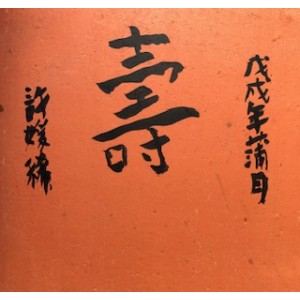 戊戌年蒲月
壽
許媛禕